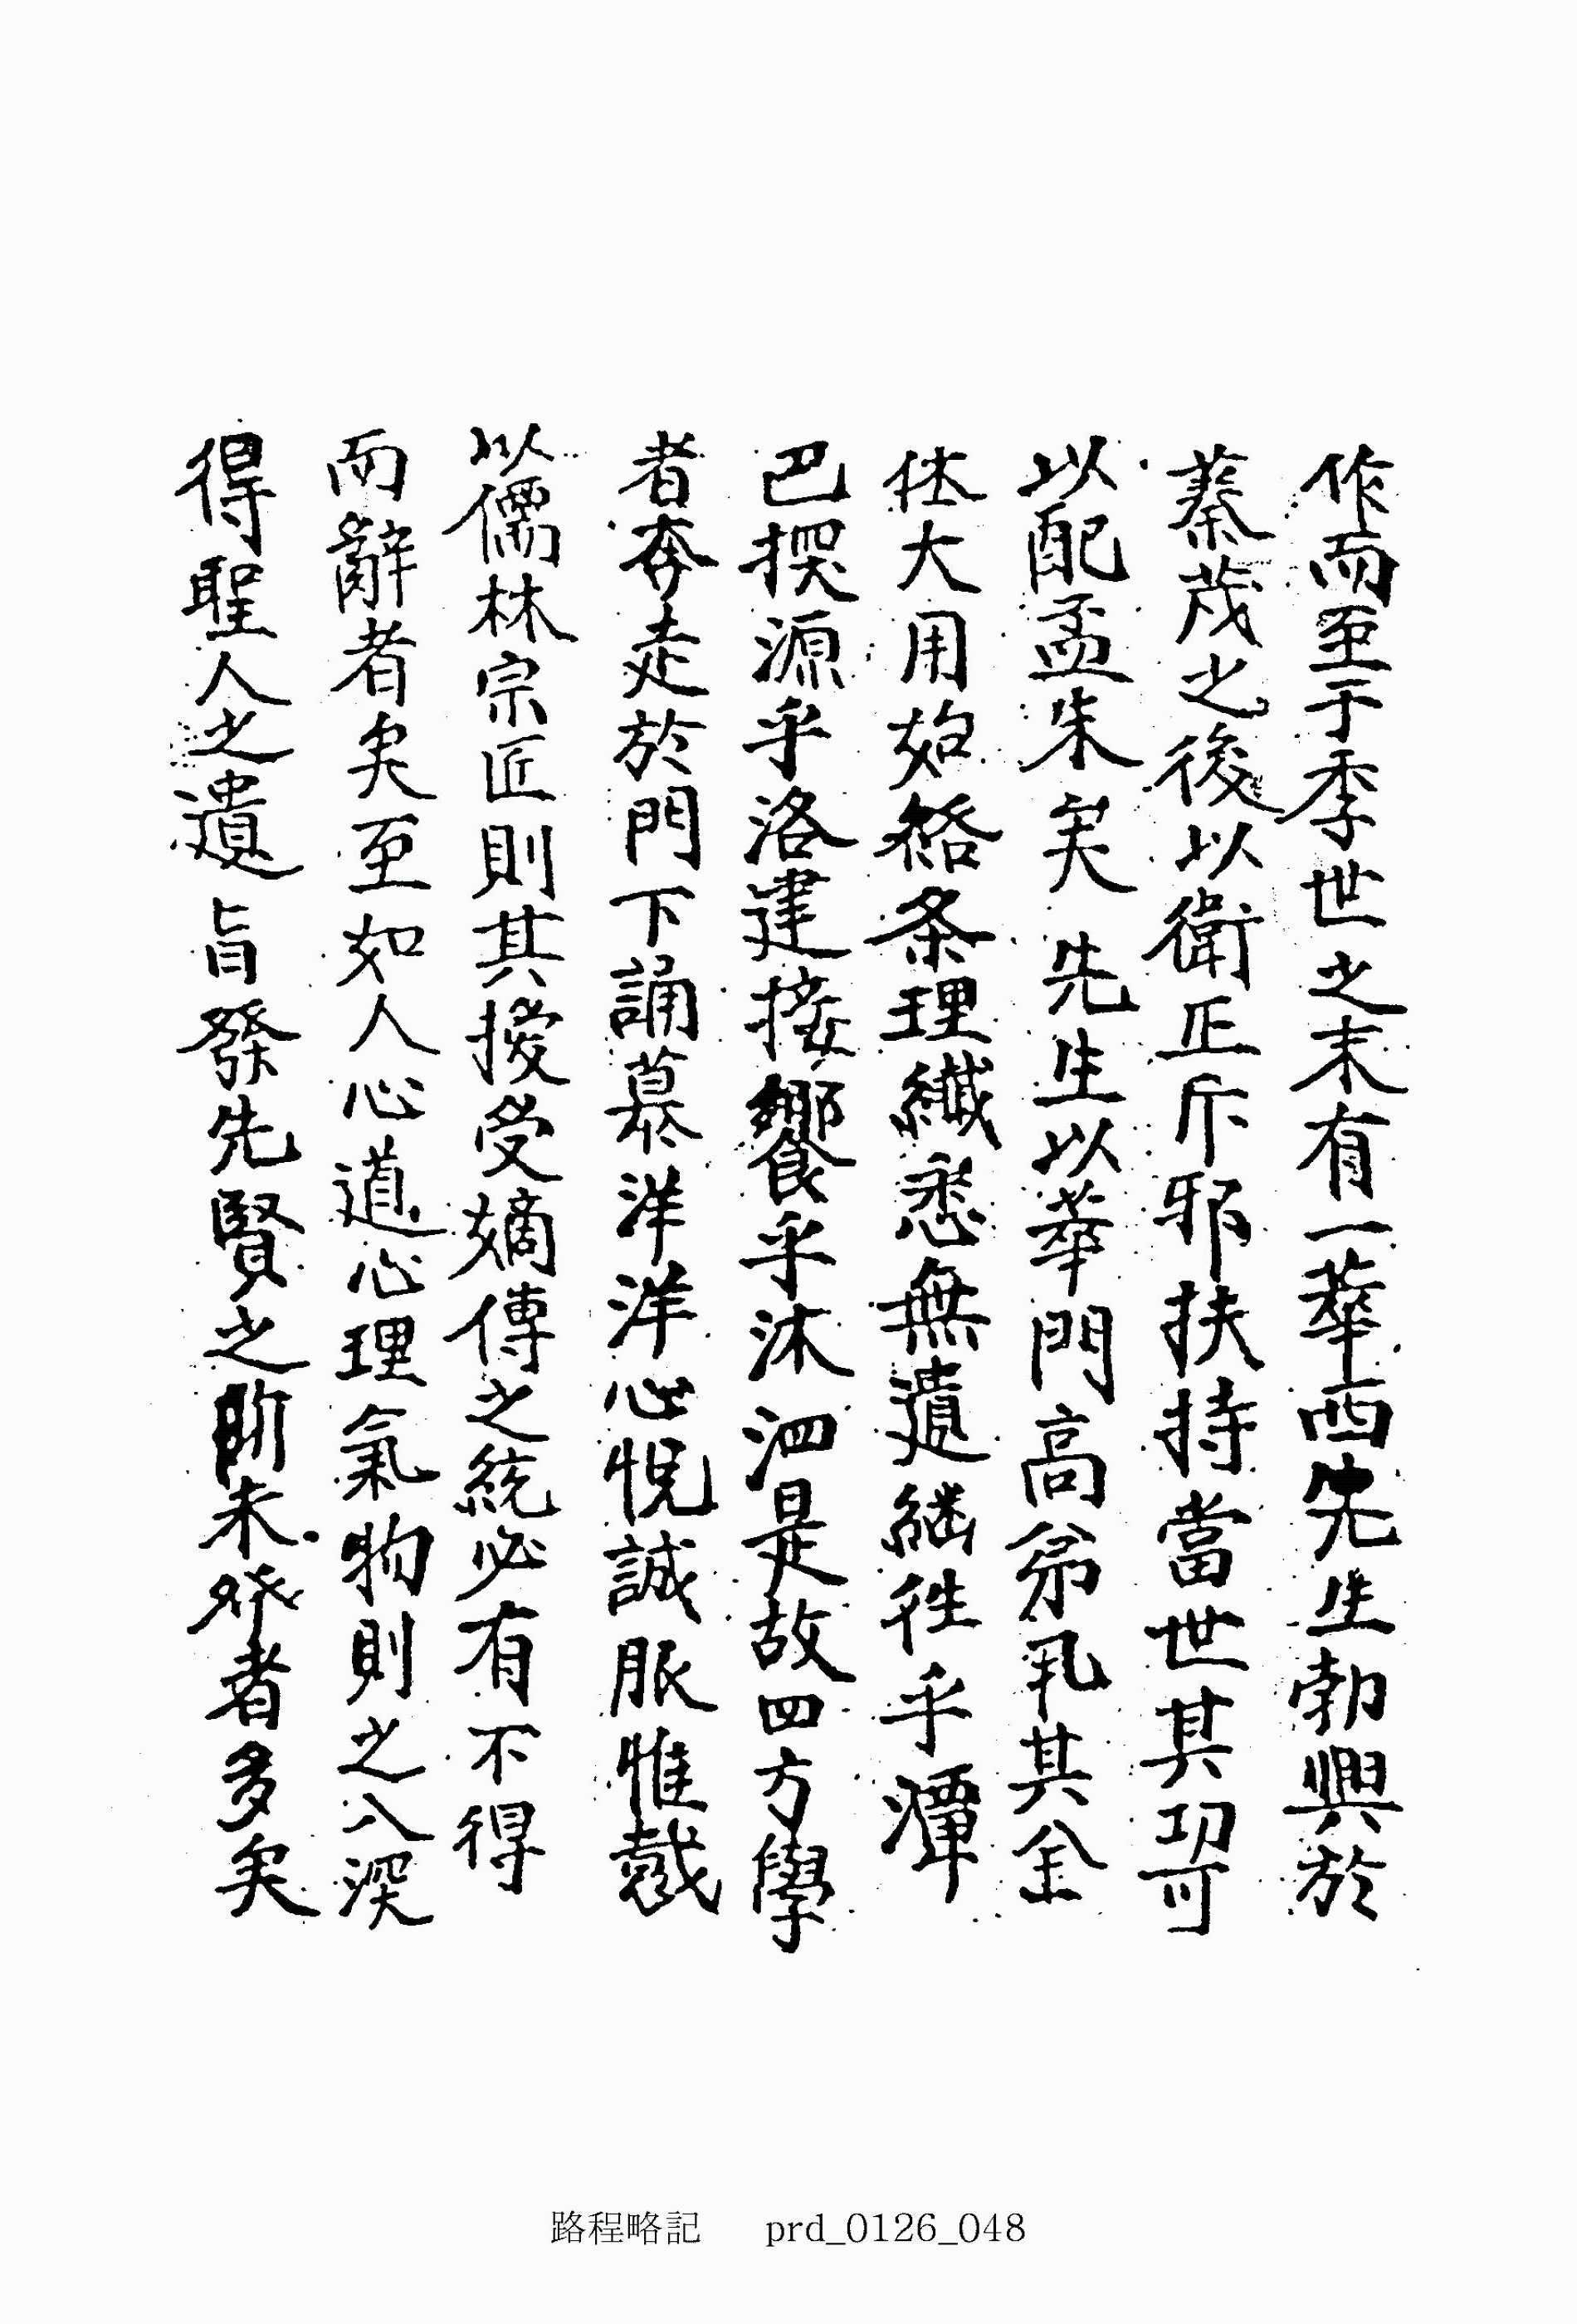 作而至于季世之末有一華西先生勃興於
蓁茂之後以衛正斥邪扶持當世其功可
以配孟朱矣 先生以華門高弟乳其全
体大用始終条理纖悉無遺繼徃乎潭
巴探源乎洛建接響乎沐泗是故四方學
者奔走於門下誦慕洋洋心悅誠服惟戴
以儒林宗匠則其授受嫡傳之統必有不得
而辭者矣至如人心道心理氣物則之八深
得聖人之遺旨發先賢之所未發者多矣
路程略記 prd_0126_048